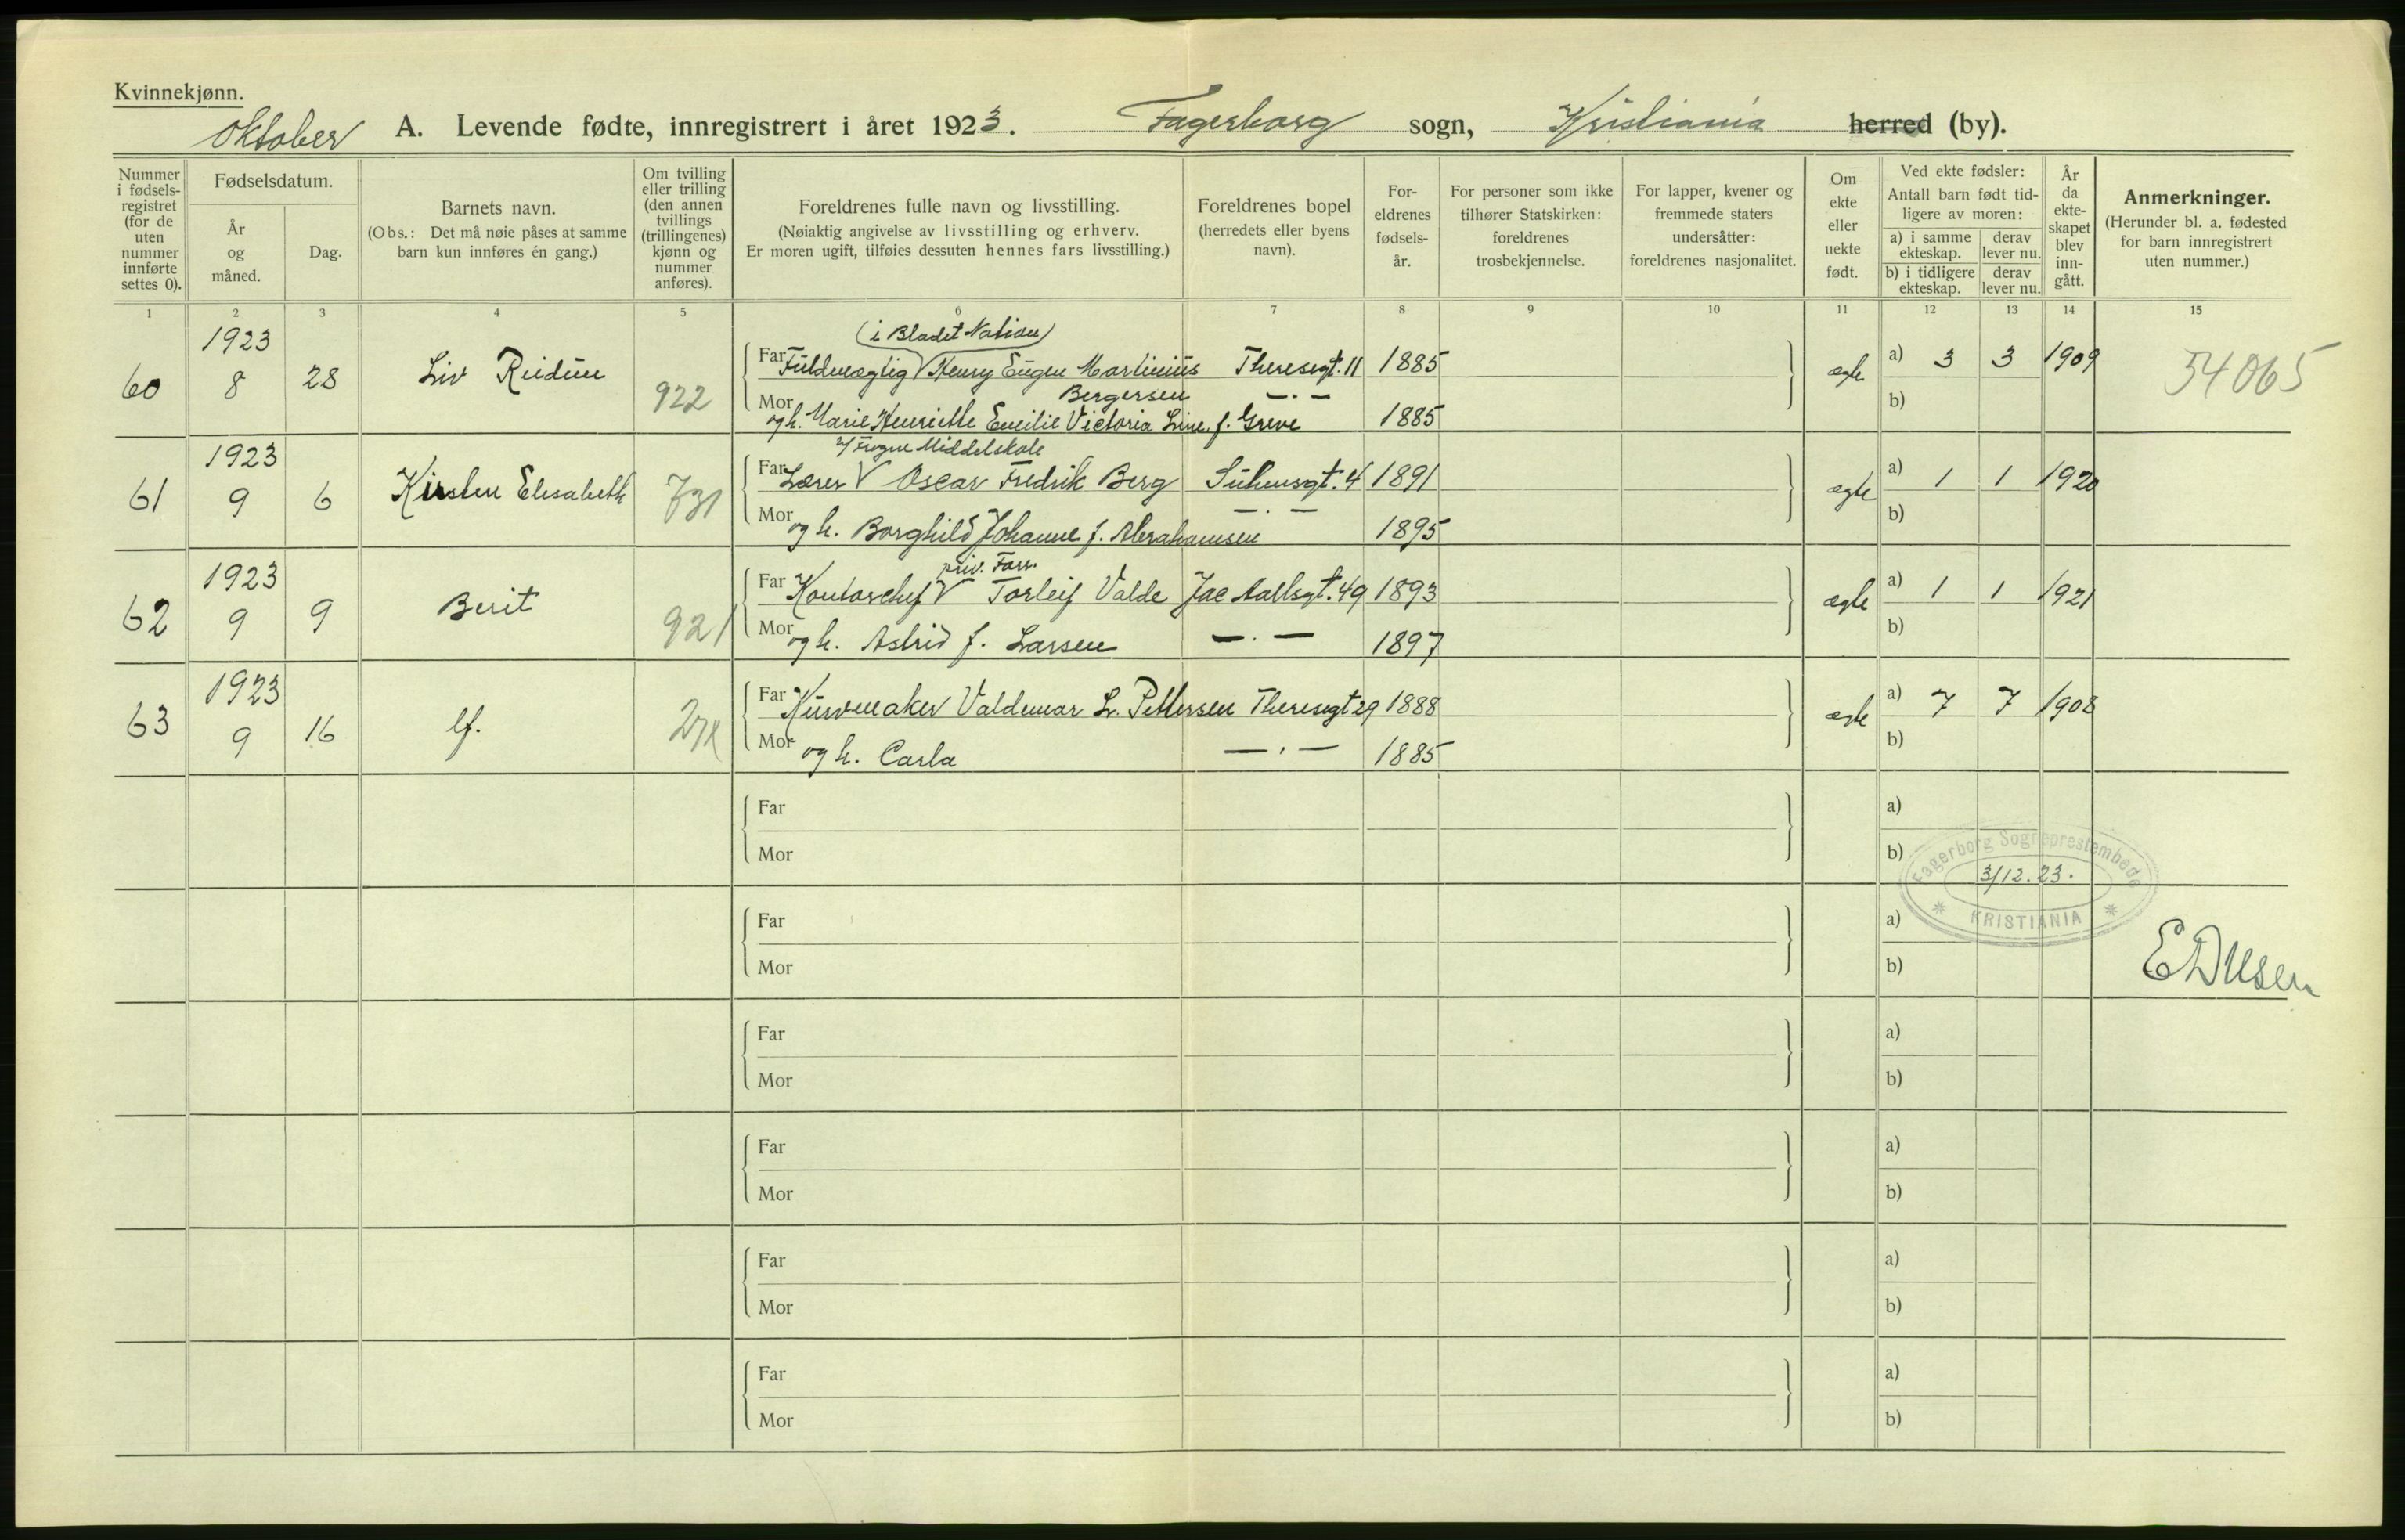 Kvinnekjønn.
Oktober A. Levende fødte, innregistrert i året 1923. Fagerborg sogn, Kristiania herred (by).
Nummer i fødsels-registret (for de uten nummer innførte settes 0).
Fødselsdatum.
År og måned.
Dag.
Barnets navn.
(Obs.: Det må nøie påses at samme barn kun innføres én gang.)
Om tvilling eller trilling (den annen tvillings (trillingenes) kjønn og nummer anføres).
Foreldrenes fulle navn og livsstilling.
(Nøiaktig angivelse av livsstilling og erhverv.
Er moren ugift, tilføies dessuten hennes fars livsstilling.)
Foreldrenes bopel
(herredets eller byens navn).
For-eldrenes fødsels-år.
For personer som ikke tilhører Statskirken: foreldrenes trosbekjennelse.
For lapper, kvener og fremmede staters undersåtter: foreldrenes nasjonalitet.
Om ekte eller uekte født.
Ved ekte fødsler:
Antall barn født tid-ligere av moren:
a) i samme ekteskap.
derav lever nu.
b) i tidligere ekteskap.
derav lever nu.
År da ekte-skapet blev inn-gått.
Anmerkninger.
(Herunder bl. a. fødested for barn innregistrert uten nummer.)
1 2 3 4 5 6 7 8 9 10 11 12 13 14 15
60 1923 8 28 Liv Reidun 922
(i Bladet Nation)
Far Fuldmægtig V Henry Eugen Martinius Bergersen Theresegt. 11 1885 ægte a) 3 3 1909 54065
Mor og h. Marie Henriette Emilie Victoria Line f. Greve — . — 1885 b)
61 1923 9 6 Kirsten Elisabeth 731
v/ Frogne Middelskole
Far Lærer V Oscar Fredrik Berg Suhmsgt. 4 1891 ægte a) 1 1 1920
Mor og h. Borghild Johanne f. Abrahamsen — . — 1895 b)
62 1923 9 9 Berit 921
priv. Forr.
Far Kontorchef V Torleif Valde Jac Aallsgt. 49 1893 ægte a) 1 1 1921
Mor og h. Astrid f. Larsen — . — 1897 b)
63 1923 9 16 lf.
Far Kurvmaker Valdemar L. Pettersen Theresegt 29 1888 ægte a) 7 7 1908
Mor og h. Carla — . — 1885 b)
Far a)
Mor b)
Fagerborg Sogneprestembede
3/12. 23.
KRISTIANIA
Far a)
Mor b)
Far a)
Mor b)
Far a)
Mor b)
Far a)
Mor b)
Far a)
Mor b)